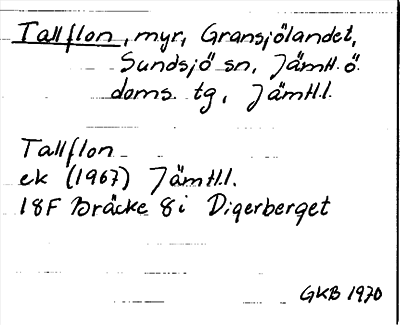 Tallflon, myr, Gransjölandet,
Sundsjö sn, Jämtl. ö.
doms. tg, Jämtl.l.
Tallflon
ek (1967) Jämtl.l.
18F Bräcke 8i Digerberget
GKB 1970